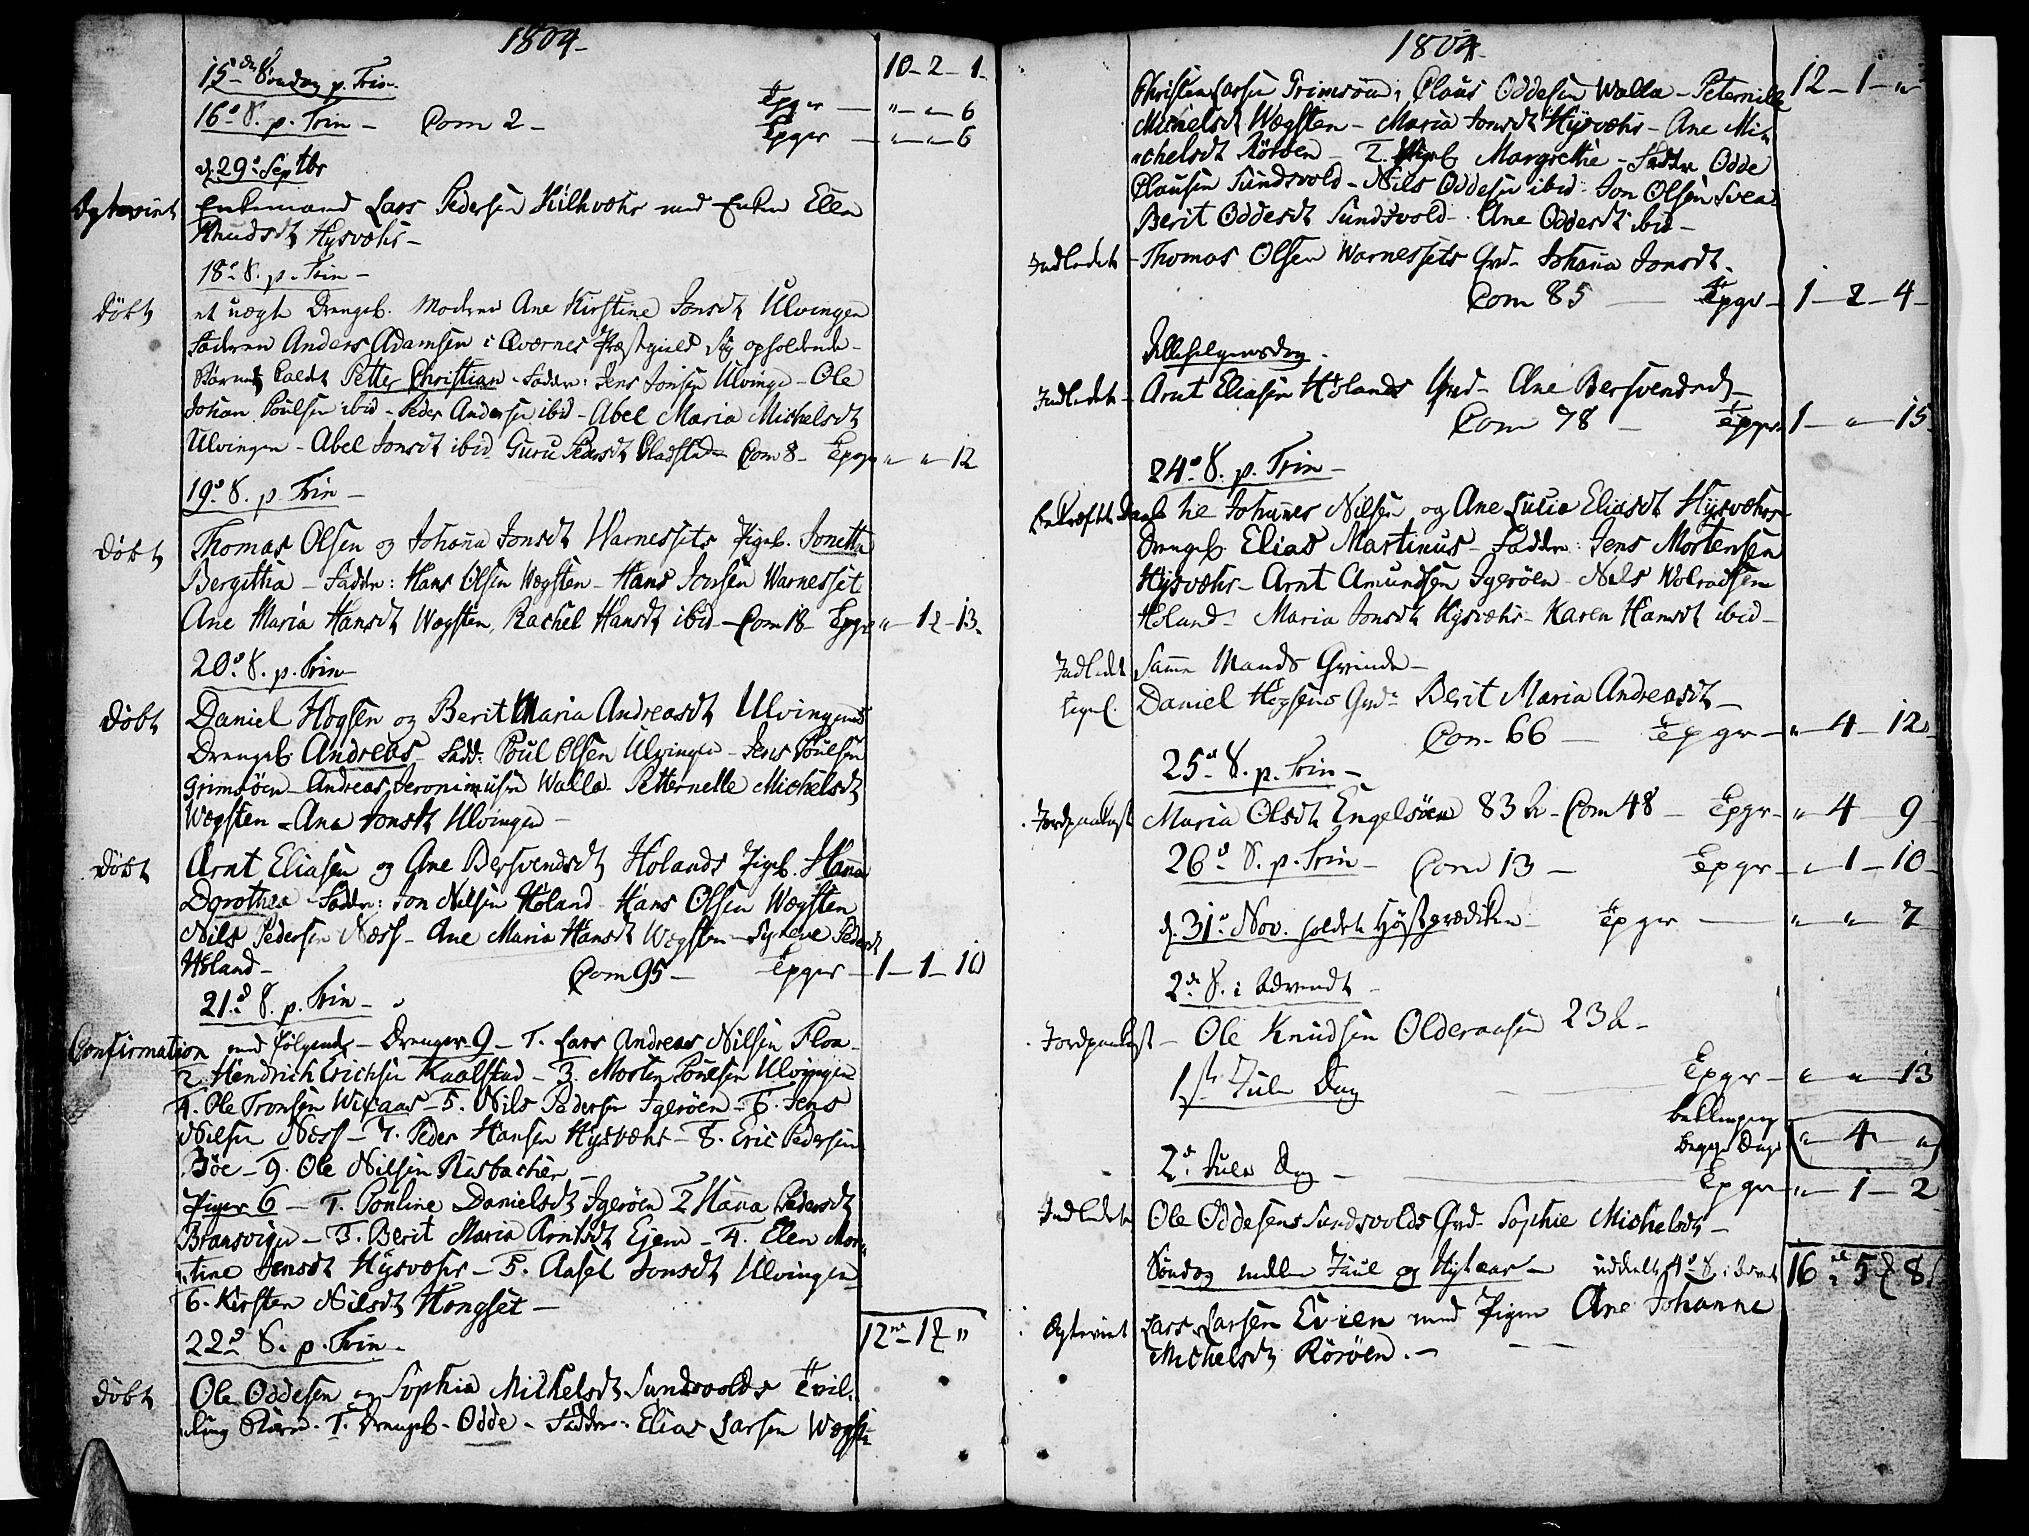 1804.
10-2-1-
15de Søndag p. Trin.
Epgr — " - " - 6
16d S. p. Trin - Com 2 -
Epgr — " - " - 6
d. 29d Septbr
Ægtevint Enkemand Lars Pedersen Kilkvæhr med Enken Ellen
Knudsdt Hysvæhr -
18d S. p. Trin -
Døbt et uægte Drengeb. Moderen Ane Kirstine Jonsdt Ulvingen
Faderen Anders Adamsen i Qværnes Præstegield sig opholdende -
Barnet kaldt Petter Christian - Faddr: Jens Jonsen Ulvinge - Ole
Johan Poulsen ibid - Peder Andersen ibid - Abel Maria Michelsdt
Ulvingen - Abel Jonsdt ibid Guru Pedersdt Gladstad - Com 8 - Epgr " - " - 12
19d S. p. Trin -
Døbt Thomas Olsen og Johanna Jonsdt Warnessits Pigeb. Jonetta
Bergittha - Faddr: Hans Olsen Wægsten - Hans Jonsen Warnesset
Ane Maria Hansdt Wægsten, Rachel Hansdt ibid - Com 18 - Epgr " - 12 - 13.
20d S. p. Trin -
Døbt Daniel Hogsen og Berit Maria Andreasdt Ulvingens
Drengeb Andreas - Fadd: Poul Olsen Ulvingen - Jens Poulsen
Grimsöen - Andreas Jeronimusen Walla - Petternelle Michelsdt
Wægsten - Ane Jonsdt Ulvingen -
Døbt Arnt Eliasen og Ane Bersvendsdt Holands Pigeb. Hanna
Dorothea - Faddr: Jon Nilsen Holand - Hans Olsen Wægsten
Nils Pedersen Næss - Ane Maria Hansdt Wægsten - Synneve Pedersdt
Holand - Com 95 - Epgr — 1 - 1 - 10
21d S. p. Trin -
Confirmation med følgende - Drenger 9 - 1. Lars Andreas Nilsen Floa -
2. Hendrich Erichsen Kaalstad - 3. Morten Poulsen Ulvingen
4. Ole Tronsen Wikaas - 5. Nils Pedersen Igeröen - 6. Jens
Nilsen Næss - 7. Peder Hansen Hysvæhr - 8. Eric Pedersen
Böe - 9. Ole Nilsen Risbackier -
Piger 6 - 1. Pouline Danielsdt Igeröen 2 Hana Pedersdt
Bransvigen - 3. Berit Maria Arntsdt Ejem - 4. Ellen Mar-
tine Jensdt Hysvæhr - 5. Aasel Jonsdt Ulvingen
6. Kirsten Nilsdt Hongset -
22d S. p. Trin - 12 - 1 "
Døbt Ole Oddesen og Sophia Michelsdt Sundsvolds Tvil-
ling Børn - 1. Drengeb - Odde - Faddr: Elias Larsen Wægst
1804.
Christen Larsen Grimsöen, Claus Oddesen Walla - Peternille 12 - 1 - "
Michelsdt Wægsten - Maria Jonsdt Hysvæhr - Ane Mi-
chelsdt Röröen - 2. Pigeb Margrethe - Faddr Odde
Clausen Sundsvold - Nils Oddesen ibid - Jon Olsen Svea
Berit Oddesdt Sundsvold - Ane Oddesdt ibid -
Indledet - Thomas Olsen Warnessets Qvd - Johanna Jonsdt.
Com 85 — Epgr - 1 - 2 - 4 -
Allehelgensdag.
Indledet - Arnt Eliasen Holands Qvd - Ane Bersvendsdt -
Com 78 - Epgr 1 - " - 15
24d S. p. Trin -
Johannes Nilsen og Ane Lucia Eliasdt Hysvæhrs
Drengeb. Elias Martinus - Faddr: Jens Mortensen
Hysvæhr - Arnt Amundsen Igeröen - Nils Wolradsen
Holand - Maria Jonsdt Hysvæhr - Karen Hansdt ibid -
Indledt Samme Mands Qvinde -
Daniel Hogsens Qvd - Berit Maria Andreasdt -
Com - 66 — Epgr - " - 4 - 12
25d S. p. Trin -
Jordpaakast Maria Olsdt Engelsöen 83 A - Com 48 - Epgr - " - 4 - 9
26d S. p. Trin - Com 13 - Epgr - " - 1 - 10 -
d. 31d Nov. holdet Høstprædiken - Epgr — " - " - 7
2d S. i Advendt -
Jordpaakast - Ole Knudsen Olderaasen 23 A -
1ste Jule Dag Epgr - " - " - 13
begge Dage " - 4 - "
2d Jule Dag - Epgr - " - 1 - 2
Indledet Ole Oddesens Sundsvolds Qvd - Sophie Michelsdt -
Søndag mellem Juul og Nytaar - 16 - 5 - 8
Ægtevint Lars Larsen Evien med Pigen Ane Johanne
Michelsdt Röröen. -